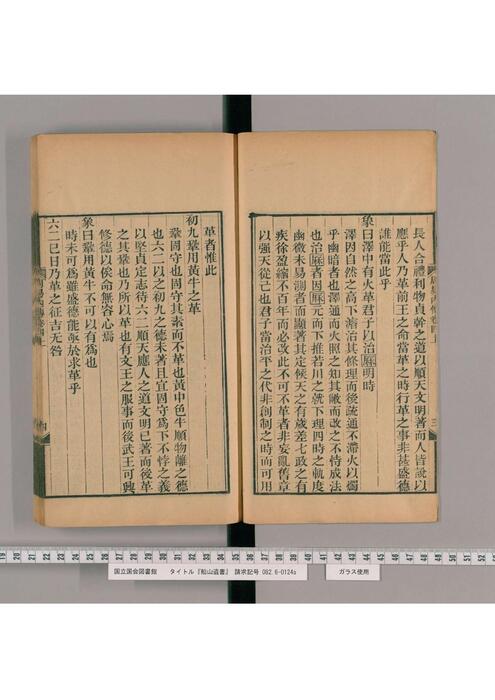 長人合禮利物貞幹之道以順天文明著而人皆說以
應乎人乃革前王之命當革之時行革之事非甚盛德
誰能當此乎
象曰澤中有火革君子以治歴明時
澤因自然之高下瀦治其條理而後疏通不滯火以燭
乎幽暗者也澤通而火照之知其敝而改之不恃成法
也治歴者因歴元而下推若川之就下理四時之軌度
幽微未易測者而顯著其定候天之有歲差七政之有
疾徐盈縮不百年而必改此不可不革者非妄亂舊章
以强天從己也君子當治平之代非創制之時而可用
革者惟此
初九鞏用黃牛之革
鞏固守也固守其素而不革也黃中色牛順物離之德
也六二以之初九之德未著且宜固守爲下不悖之義
以堅貞定志待六二順天應人之道文明已著而後革
之其鞏也乃所以革也有文王之服事而後武王可興
修德以俟命無容心焉
象曰鞏用黃牛不可以有爲也
時未可爲雖盛德能亟於求革乎
六二巳日乃革之征吉无咎
国立国会図書館 タイトル『船山遺書』 請求記号 082.6-0124a
ガラス使用